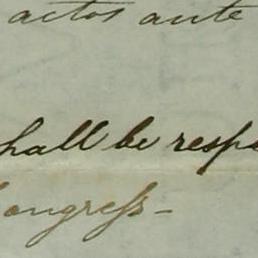 actos ante
shall be resp
Congress-